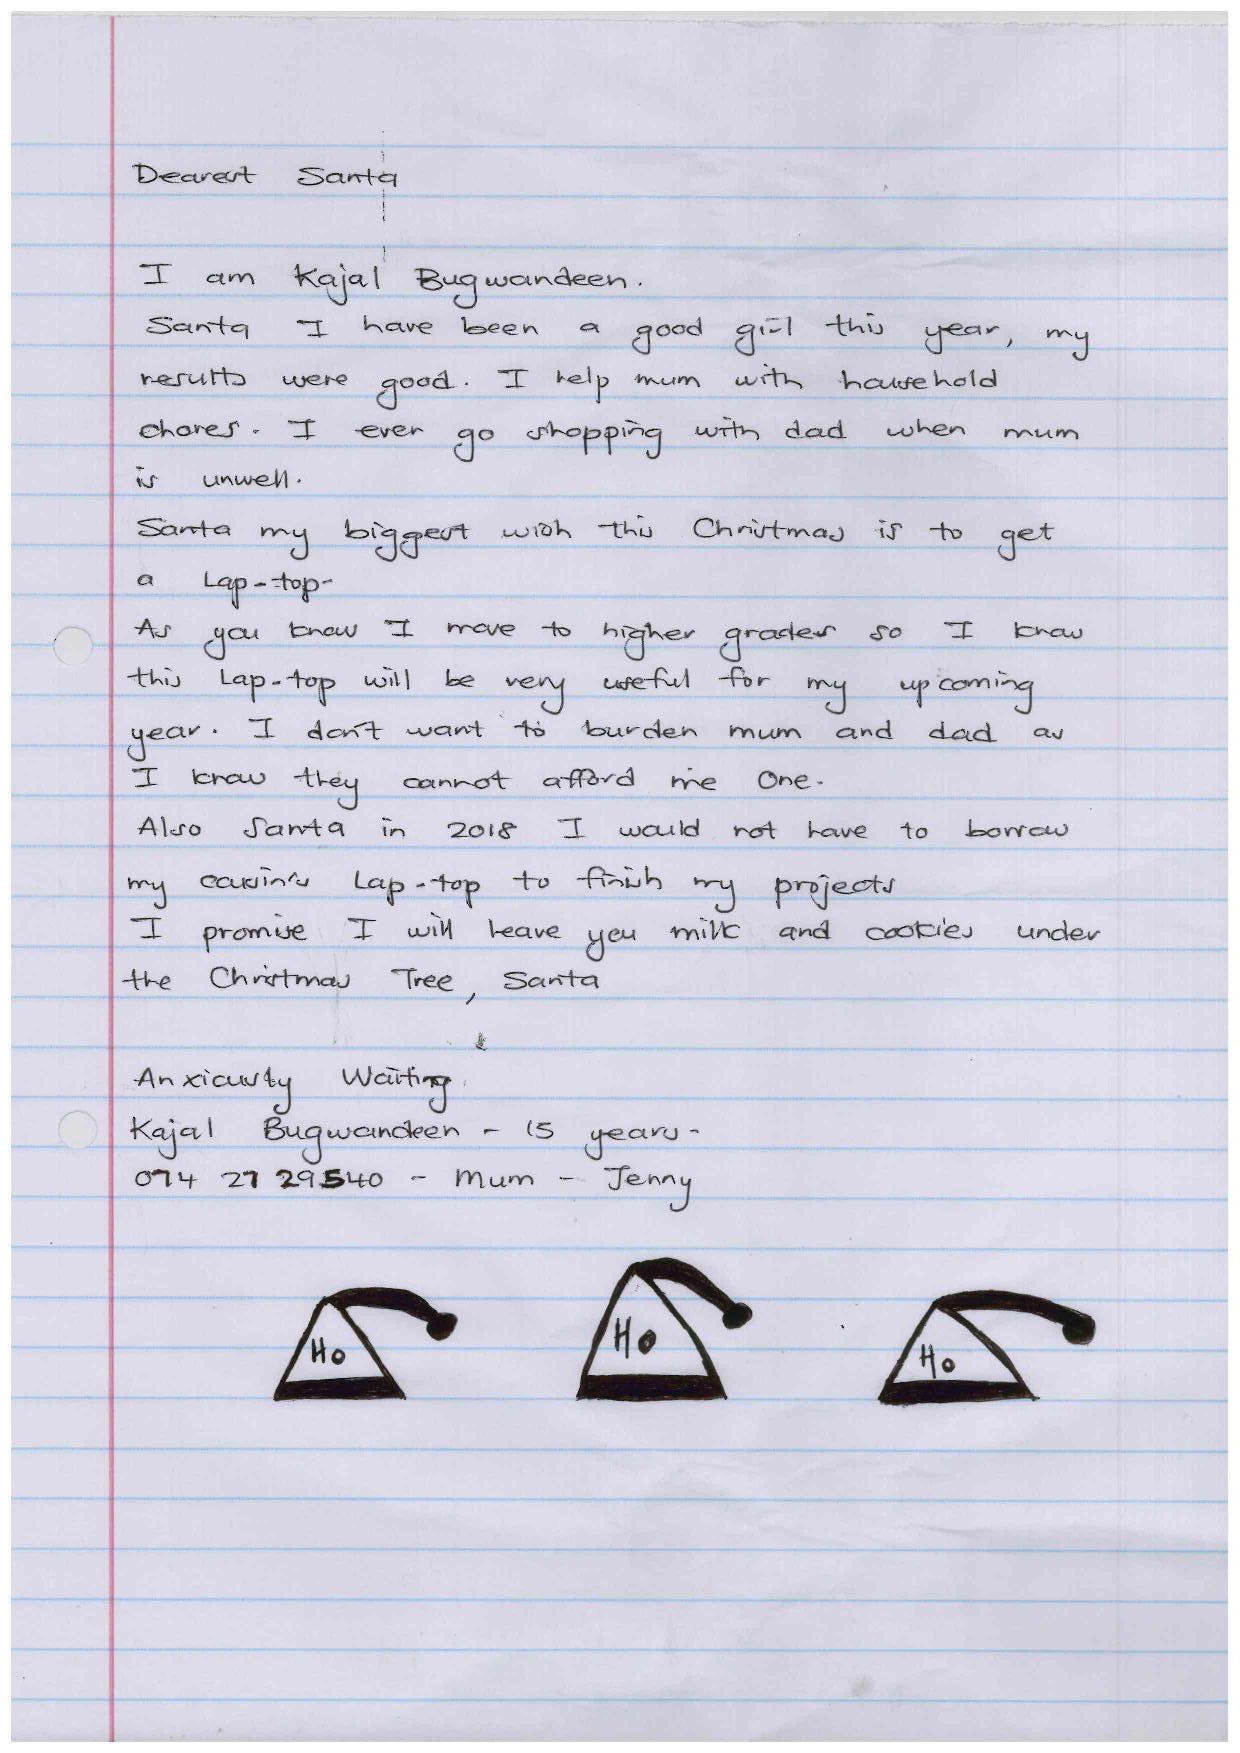 Dearest Santa
I am Kajal Bugwandeen.
Santa I have been a good girl this year, my
results were good. I help mum with household
chores. I even go shopping with dad when mum
is unwell.
Santa my biggest wish this Christmas is to get
a Lap-top-
As you know I move to higher grades so I know
this Lap-top will be very useful for my upcoming
year. I don't want to burden mum and dad as
I know they cannot afford me one.
Also Santa in 2018 I would not have to borrow
my cousin's Lap-top to finish my projects
I promise I will leave you milk and cookies under
the Christmas Tree, Santa
Anxiously Waiting
Kajal Bugwandeen - 15 years-
074 27 29540 - Mum - Jenny
Ho Ho Ho